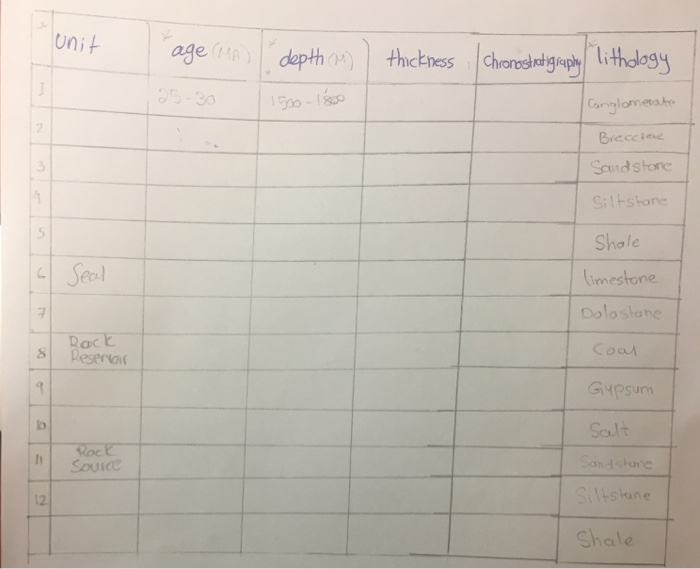 x unit x age (MA) x depth (M) thickness chronostratigraphy x lithology
1 25-30 1500-1800 Conglomerate
2 Brecciae
3 Sandstone
4 Siltstone
5 Shale
6 Seal limestone
7 Dolostone
8 Rock Reservoir Coal
9 Gypsum
10 Salt
11 Rock Source Sandstone
12 Siltstone
Shale